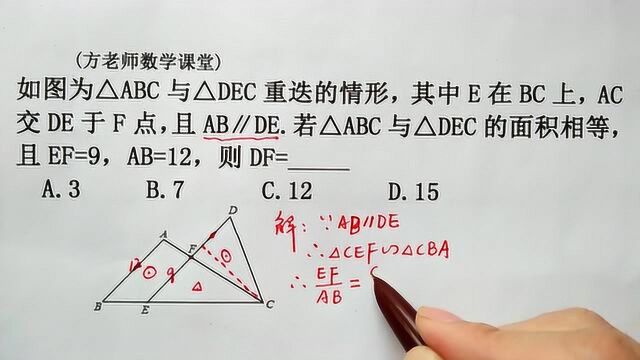 (方老师数学课堂)
如图为△ABC 与△DEC 重迭的情形，其中 E 在 BC 上，AC
交 DE 于 F 点，且 AB∥DE. 若△ABC 与△DEC 的面积相等，
且 EF=9，AB=12，则 DF=
A. 3 B. 7 C. 12 D. 15
D
A
F
12
9
B
E
C
解：∵AB∥DE
∴△CEF∽△CBA
∴ EF/AB = C